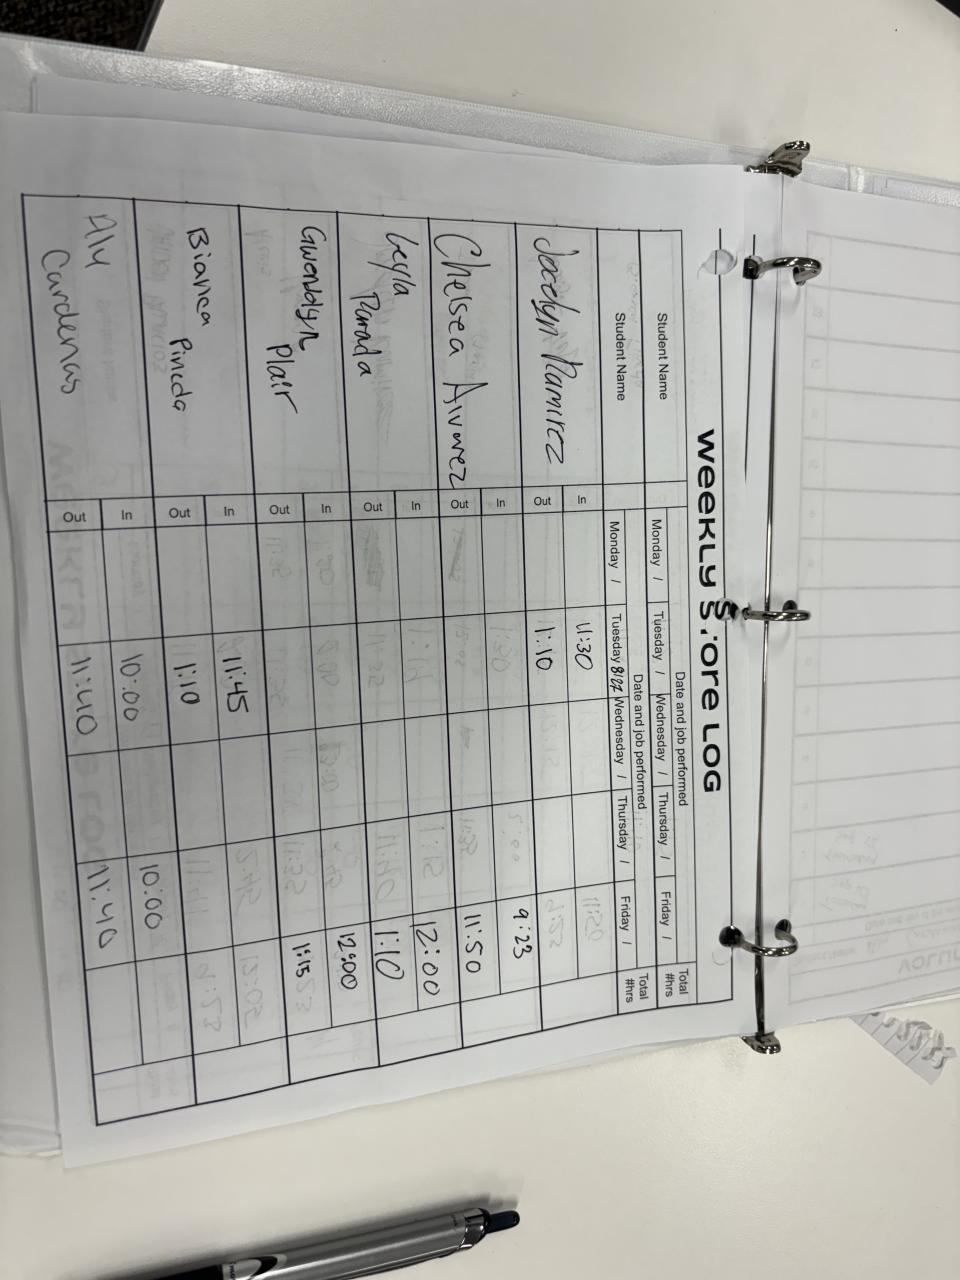 WEEKLY STORE LOG
Student Name Date and job performed Total #hrs
Monday / Tuesday / Wednesday / Thursday / Friday /
Student Name Date and job performed Total #hrs
Monday / Tuesday 8/27 Wednesday / Thursday / Friday /
Jocelyn Ramirez In 11:30
Out 1:10
Chelsea Alvarez In 9:23
Out 11:50
Leyla Parada In 12:00
Out 1:10
Gwendolyn Plair In 12:00
Out 1:15
Bianca Pineda In 11:45
Out 1:10
Aly Cardenas In 10:00 10:00
Out 11:40 11:40